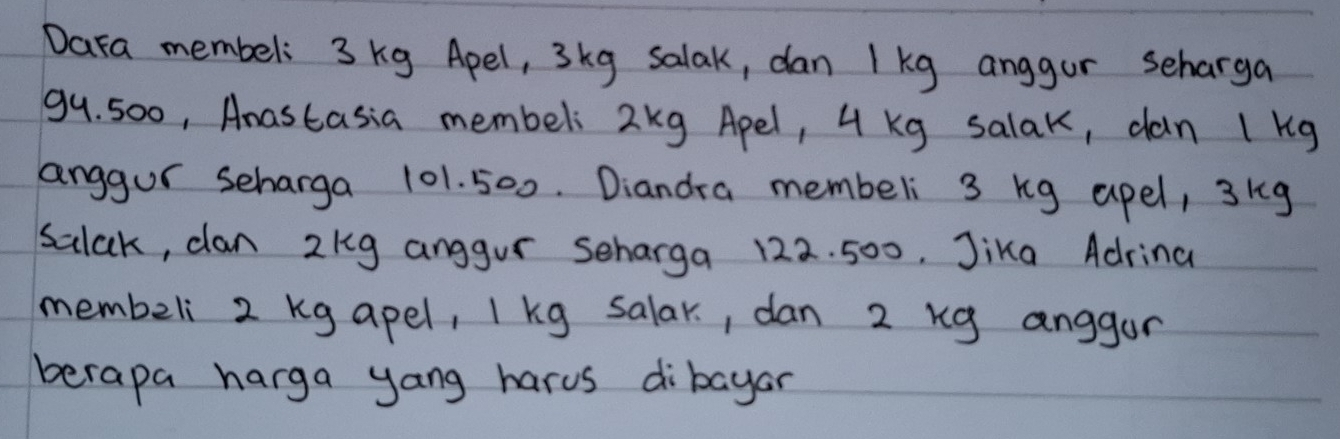 Dafa membeli 3 kg Apel, 3kg Salak, dan 1 kg anggur seharga
94.500, Anastasia membeli 2kg Apel, 4 kg salak, dan 1 kg
anggur seharga 101.500. Diandra membeli 3 kg apel, 3kg
Salak, dan 2kg anggur seharga 122.500. Jika Adrina
membeli 2 kg apel, 1 kg salak, dan 2 kg anggur
berapa harga yang harus dibayar